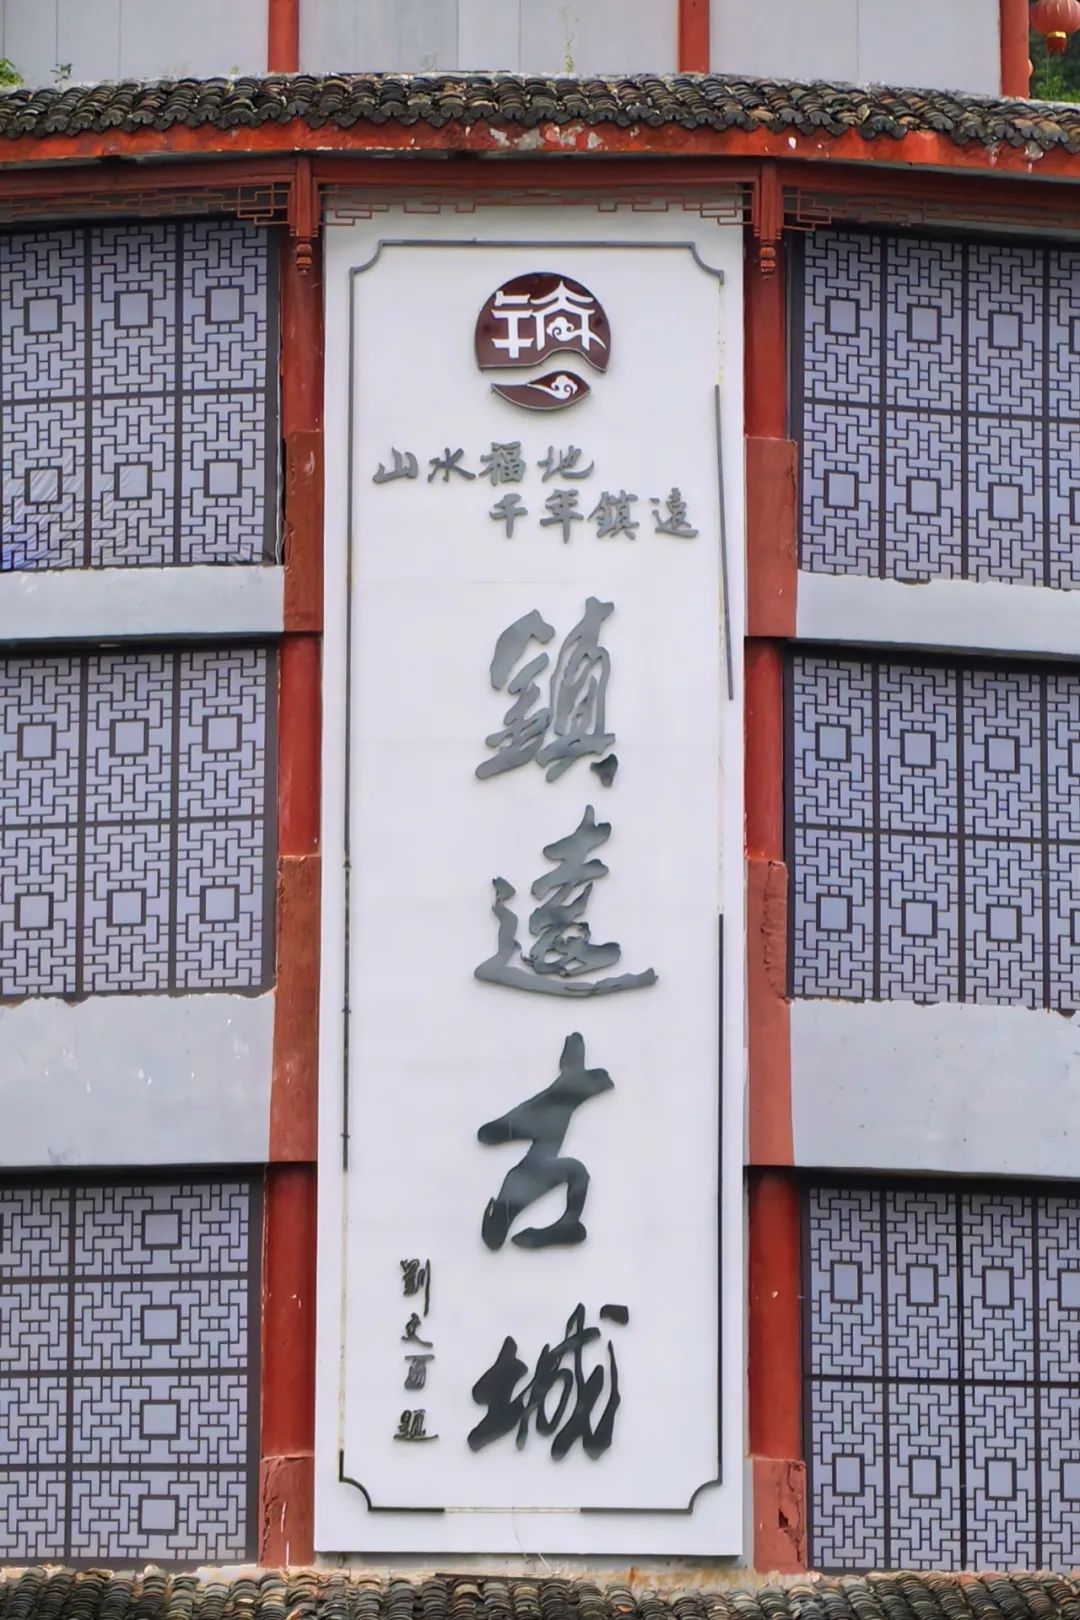 山水福地
千年鎮遠
鎮遠古城
劉文西題